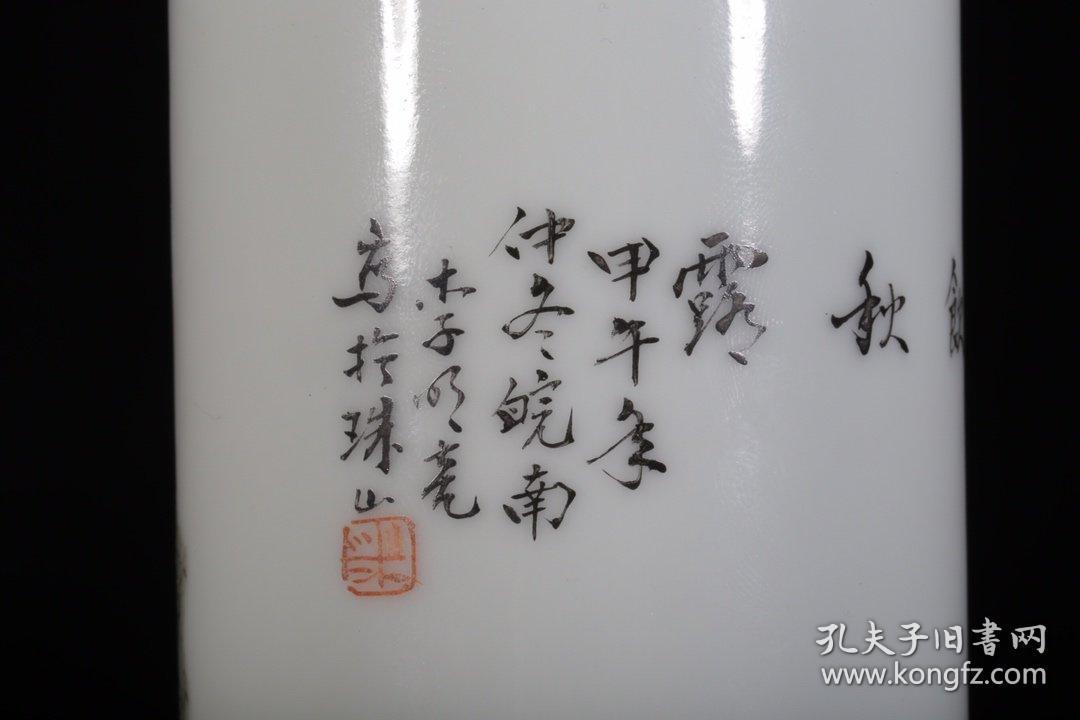 秋
露
甲午年
仲冬皖南
李明亮
写於珠山
孔夫子旧書网
www.kongfz.com